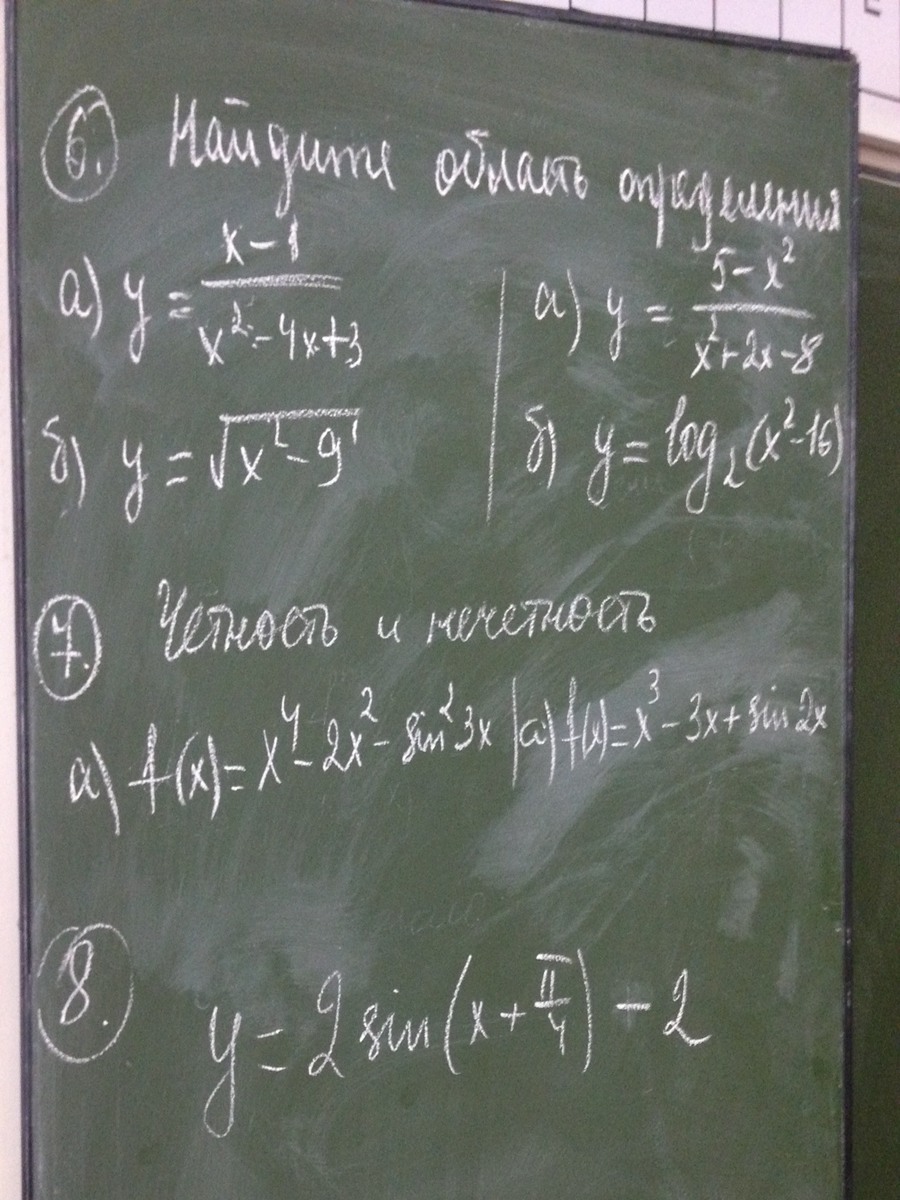 6. Найдите область определения
а) y = (x-1)/(x²-4x+3) | а) y = (5-x²)/(x²+2x-8)
б) y = √(x²-9) | б) y = log₂(x²-16)
7. Чётность и нечетность
а) f(x) = x⁴-2x²-sin²3x | а) f(x) = x³-3x+sin2x
8.
y = 2sin(x+π/4)-2